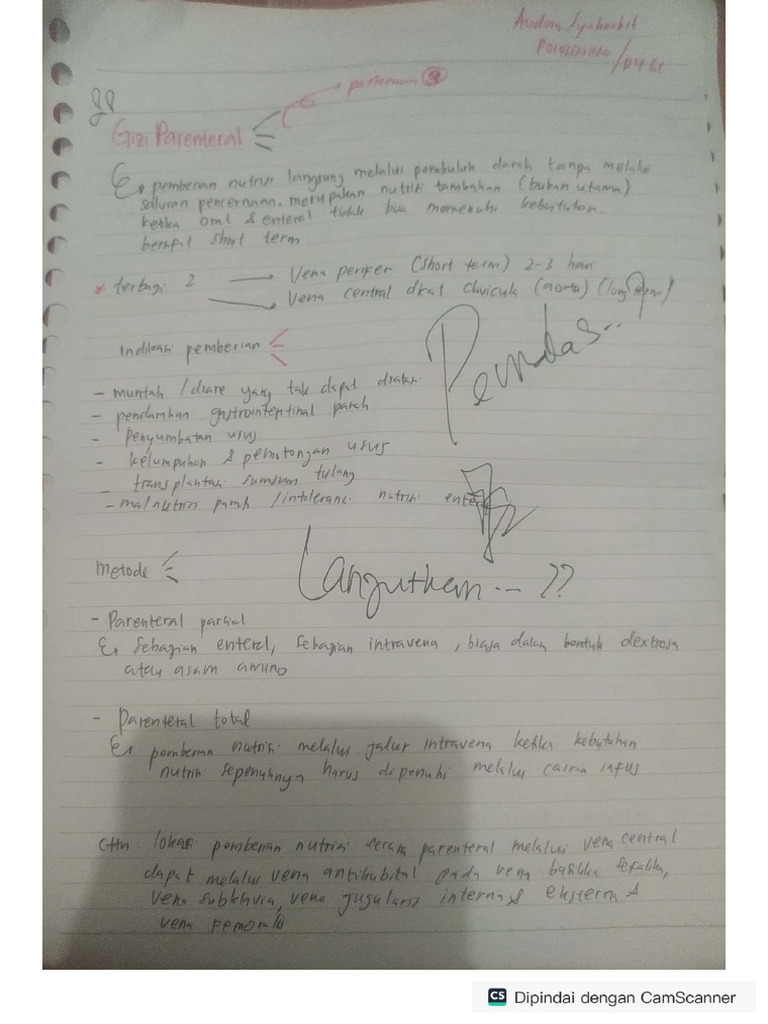 Gizi Parenteral
pertemuan 3
pemberian nutrisi langsung melalui pembuluh darah tanpa melalui
saluran pencernaan, merupakan nutrisi tambahan (bukan utama)
ketika oral & enteral tidak bisa memenuhi kebutuhan.
bersifat short term
* terbagi 2
Vena perifer (short term) 2-3 hari
Vena central dkat clavicula (aorta) (long term)
Indikasi pemberian
- muntah / diare yang tak dapat diatasi
- pendarahan gastrointestinal parah
- Penyumbatan usus
- kelumpuhan & pemotongan usus
- transplantasi sumsum tulang
- malnutrisi parah / intoleransi nutrisi enteral
Perndas...
Metode
Lanjutken... ??
- Parenteral parsial
sebagian enteral, sebagian intravena, biasa dalam bentuk dextrosa
atau asam amino
- Parenteral total
pemberian nutrisi melalui jalur intravena ketika kebutuhan
nutrisi sepenuhnya harus dipenuhi melalui cairan infus
Cttn lokasi pemberian nutrisi secara parenteral melalui vena central
dapat melalui vena antikubital pada vena basilika sefalika,
vena subklavia, vena jugularis interna & eksterna &
vena Femoralis
CS Dipindai dengan CamScanner